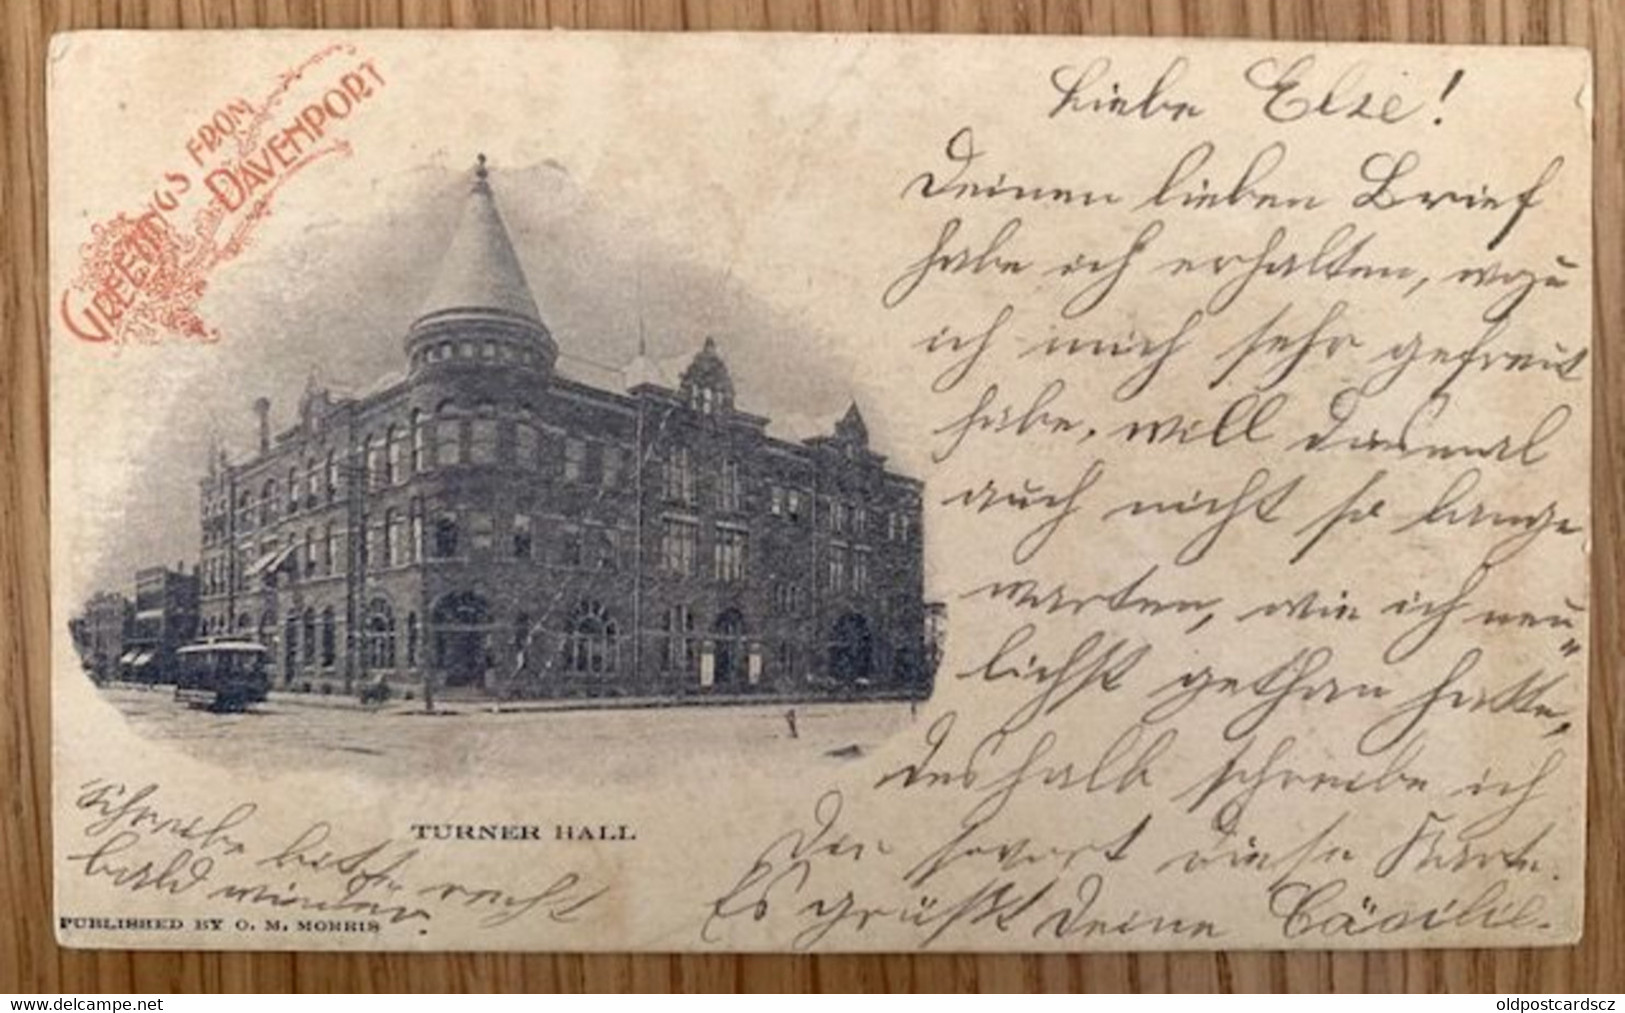 GREETINGS FROM
DAVENPORT
Liebe Else!
Deinen lieben Brief
habe ich erhalten, wozu
ich mich sehr gefreut
habe, will diesmal
auch nicht so lange
warten, wie ich neu"
lichst gethan hatte,
deshalb schreibe ich
Dir sofort diese Karte.
Es grüßt Deine Cäcilie.
Schreibe bitte recht
bald wieder.
TURNER HALL
PUBLISHED BY O. M. MORRIS
oldpostcards.com
oldpostcardscz